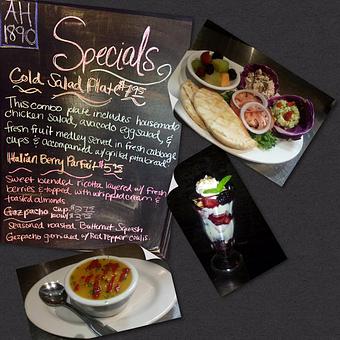 AH
1890
Specials
Cold Salad Plate $7.95
This combo plate includes housemade
chicken salad, avocado egg salad, &
fresh fruit medley served in fresh cabbage
cups & accompanied w/ grilled pita bread
Italian Berry Parfait $5.25
Sweet blended ricotta layered w/ fresh
berries & topped with whipped cream &
toasted almonds
Gazpacho cup $2.75
bowl $3.75
Seasoned roasted Butternut Squash
Gazpacho garnished w/ Red Pepper coulis.